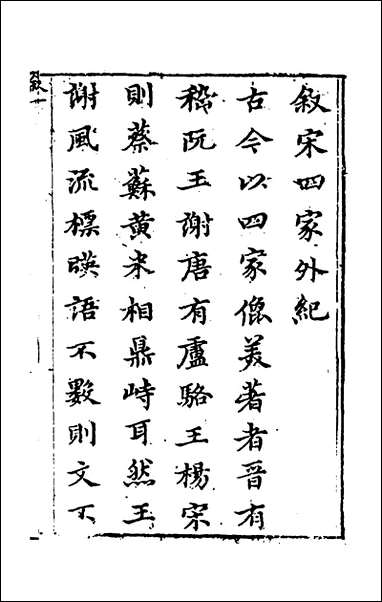 叙宋四家外紀
古今以四家儷美著者晉有
嵇阮王謝唐有盧駱王楊宋
則蔡蘇黃米相鼎峙耳然王
謝風流標映語不數則文不